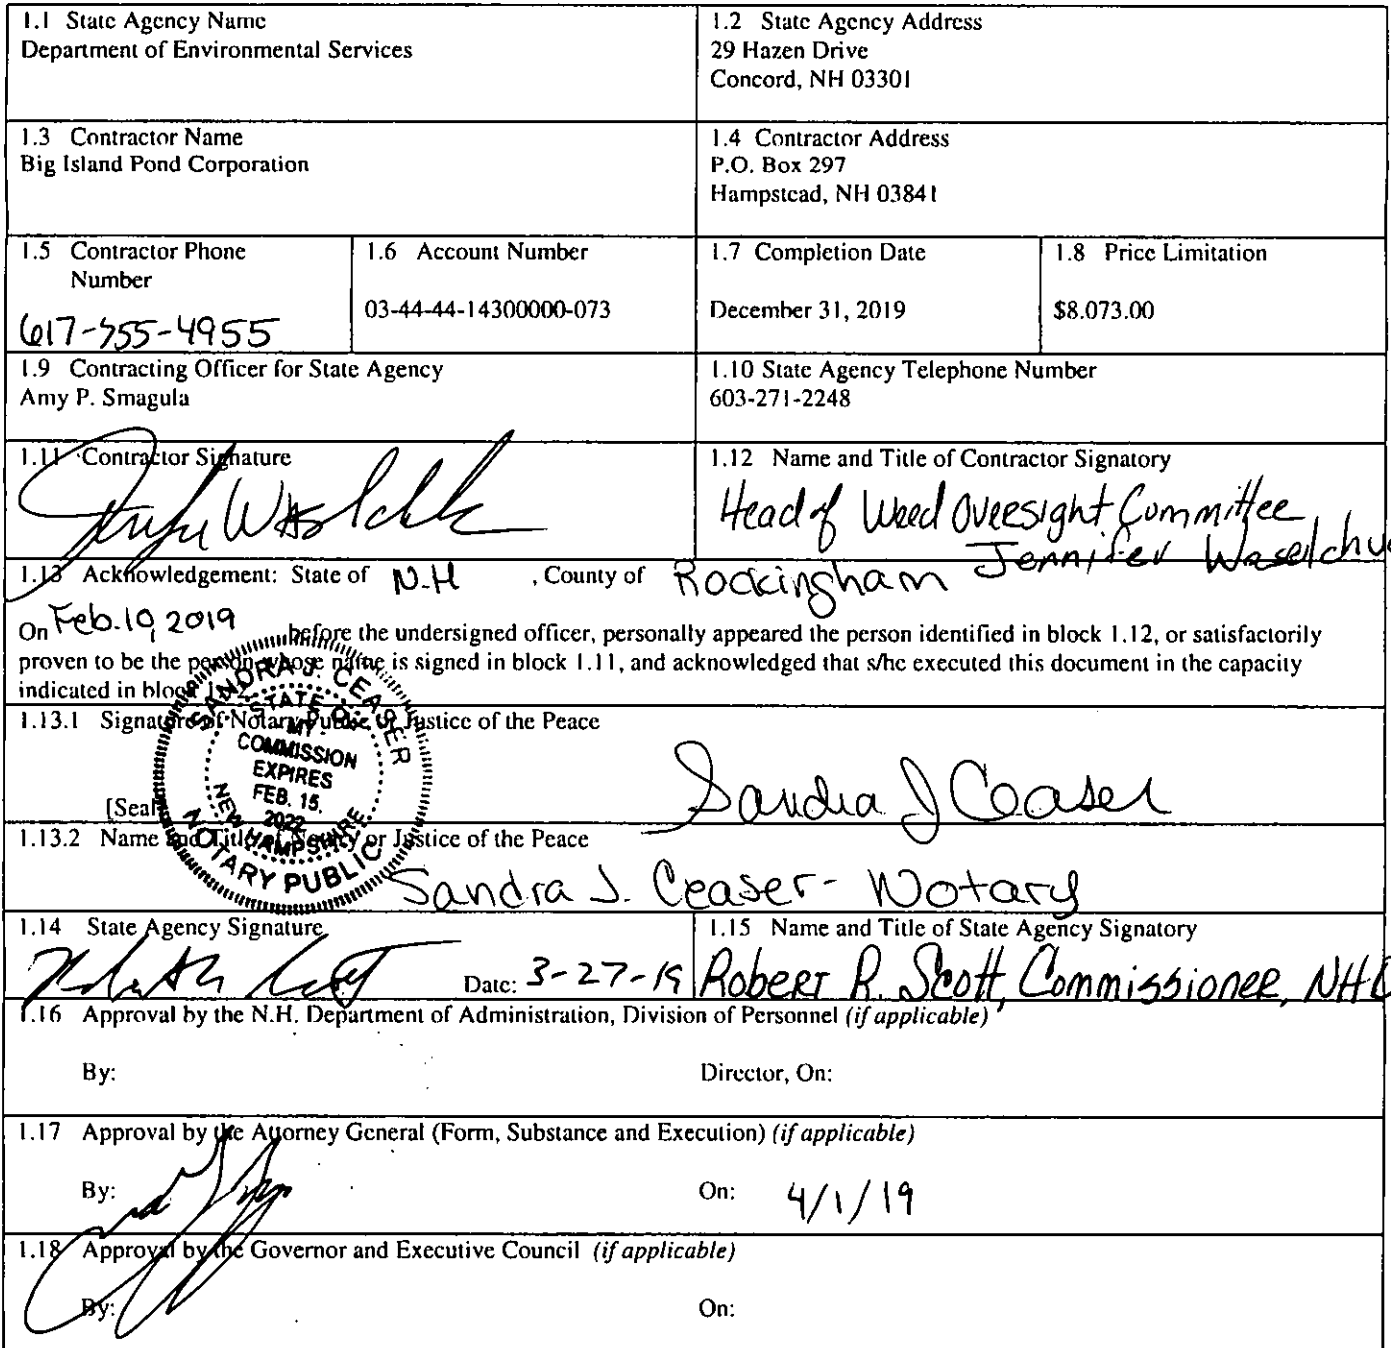 1.1 State Agency Name
Department of Environmental Services
1.2 State Agency Address
29 Hazen Drive
Concord, NH 03301
1.3 Contractor Name
Big Island Pond Corporation
1.4 Contractor Address
P.O. Box 297
Hampstead, NH 03841
1.5 Contractor Phone
Number
617-755-4955
1.6 Account Number
03-44-44-14300000-073
1.7 Completion Date
December 31, 2019
1.8 Price Limitation
$8.073.00
1.9 Contracting Officer for State Agency
Amy P. Smagula
1.10 State Agency Telephone Number
603-271-2248
1.11 Contractor Signature
1.12 Name and Title of Contractor Signatory
Head of Weed Oversight Committee
Jennifer
1.13 Acknowledgement: State of N.H , County of Rockingham
On Feb. 10, 2019 before the undersigned officer, personally appeared the person identified in block 1.12, or satisfactorily
proven to be the person whose name is signed in block 1.11, and acknowledged that s/he executed this document in the capacity
indicated in block 1.12.
1.13.1 Signature of Notary Public or Justice of the Peace
[Seal]
SANDRA J. CEASER
STATE OF
MY
COMMISSION
EXPIRES
FEB. 15,
2022
NEW HAMPSHIRE
NOTARY PUBLIC
Sandra J Ceaser
1.13.2 Name and Title of Notary or Justice of the Peace
Sandra J. Ceaser - Notary
1.14 State Agency Signature
Date: 3-27-19
1.15 Name and Title of State Agency Signatory
Robert R. Scott, Commissioner,
1.16 Approval by the N.H. Department of Administration, Division of Personnel (if applicable)
By:
Director, On:
1.17 Approval by the Attorney General (Form, Substance and Execution) (if applicable)
By:
On: 4/1/19
1.18 Approval by the Governor and Executive Council (if applicable)
By:
On: